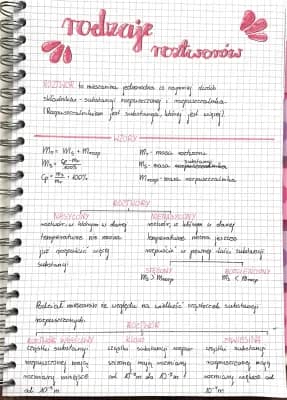 rodzaje
roztworów
ROZTWÓR to mieszanina jednorodna co najmniej dwóch
składników - substancji rozpuszczonej i rozpuszczalnika
(Rozpuszczalnikiem jest substancja, której jest więcej)
WZORY
mr = ms + mrozp
mr - masa roztworu
ms = cp · mr / 100%
ms - masa substancji
cp = ms / mr · 100%
mrozp - masa rozpuszczalnika
ROZTWORY
NASYCONY
NIENASYCONY
roztwór, w którym w danej
temperaturze nie można
już rozpuścić więcej
substancji
roztwór, w którym w danej
temperaturze można jeszcze
rozpuścić pewną ilość substancji
STĘŻONY
ROZCIEŃCZONY
ms > mrozp
ms < mrozp
Podział mieszanin ze względu na wielkość cząsteczek substancji
rozpuszczonych
ROZTWÓR
ROZTWÓR WŁAŚCIWY
KOLOID
ZAWIESINA
cząstki substancji
rozpuszczonej mają
rozmiary mniejsze
od 10⁻⁹ m
cząstki substancji rozpu-
szczonej mają rozmiary
od 10⁻⁹ m do 10⁻⁷ m
cząstki substancji
rozpuszczonej mają
rozmiary większe od
10⁻⁷ m